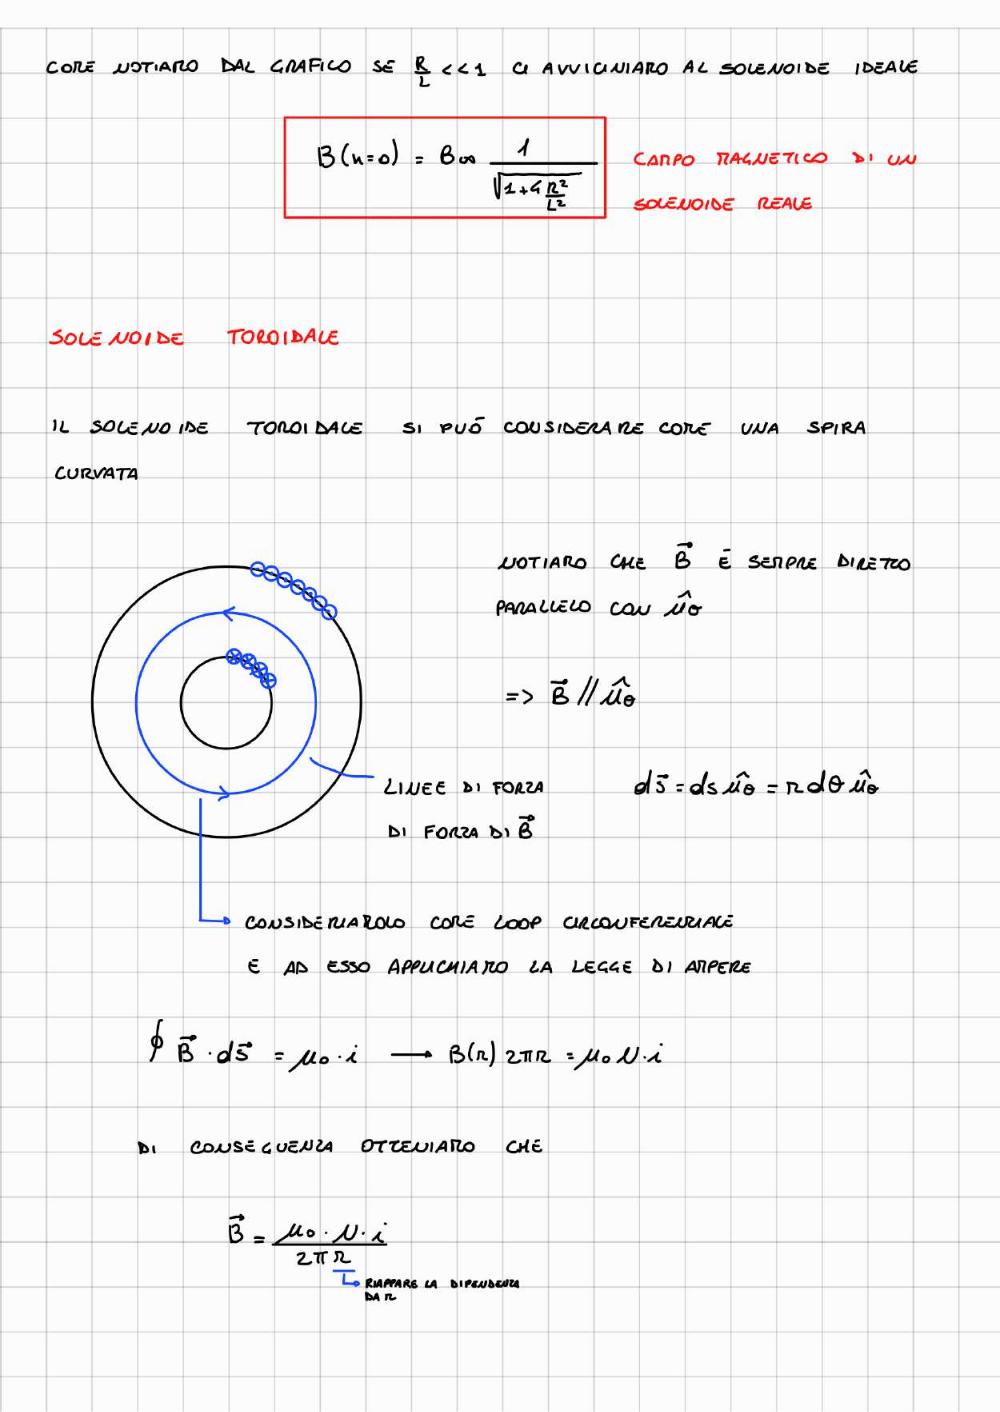 COME NOTIAMO DAL GRAFICO SE R/L <<1 CI AVVICINIAMO AL SOLENOIDE IDEALE
B(x=0) = B∞ 1/√(1+4 R²/L²)
CAMPO MAGNETICO DI UN
SOLENOIDE REALE
SOLENOIDE TOROIDALE
IL SOLENOIDE TOROIDALE SI PUÓ CONSIDERARE COME UNA SPIRA
CURVATA
NOTIAMO CHE B⃗ É SEMPRE DIRETTO
PARALLELO CON ûθ
=> B⃗ // ûθ
LINEE DI FORZA
DI FORZA DI B⃗
ds⃗ = ds ûθ = r dθ ûθ
CONSIDERIAMOLO COME LOOP CIRCONFERENZIALE
E AD ESSO APPLICHIAMO LA LEGGE DI AMPERE
∮ B⃗ · ds⃗ = μ₀ · i → B(r) 2πr = μ₀ N · i
DI CONSEGUENZA OTTENIAMO CHE
B⃗ = μ₀ · N · i / 2πr
RIAPPARE LA DIPENDENZA
DA r